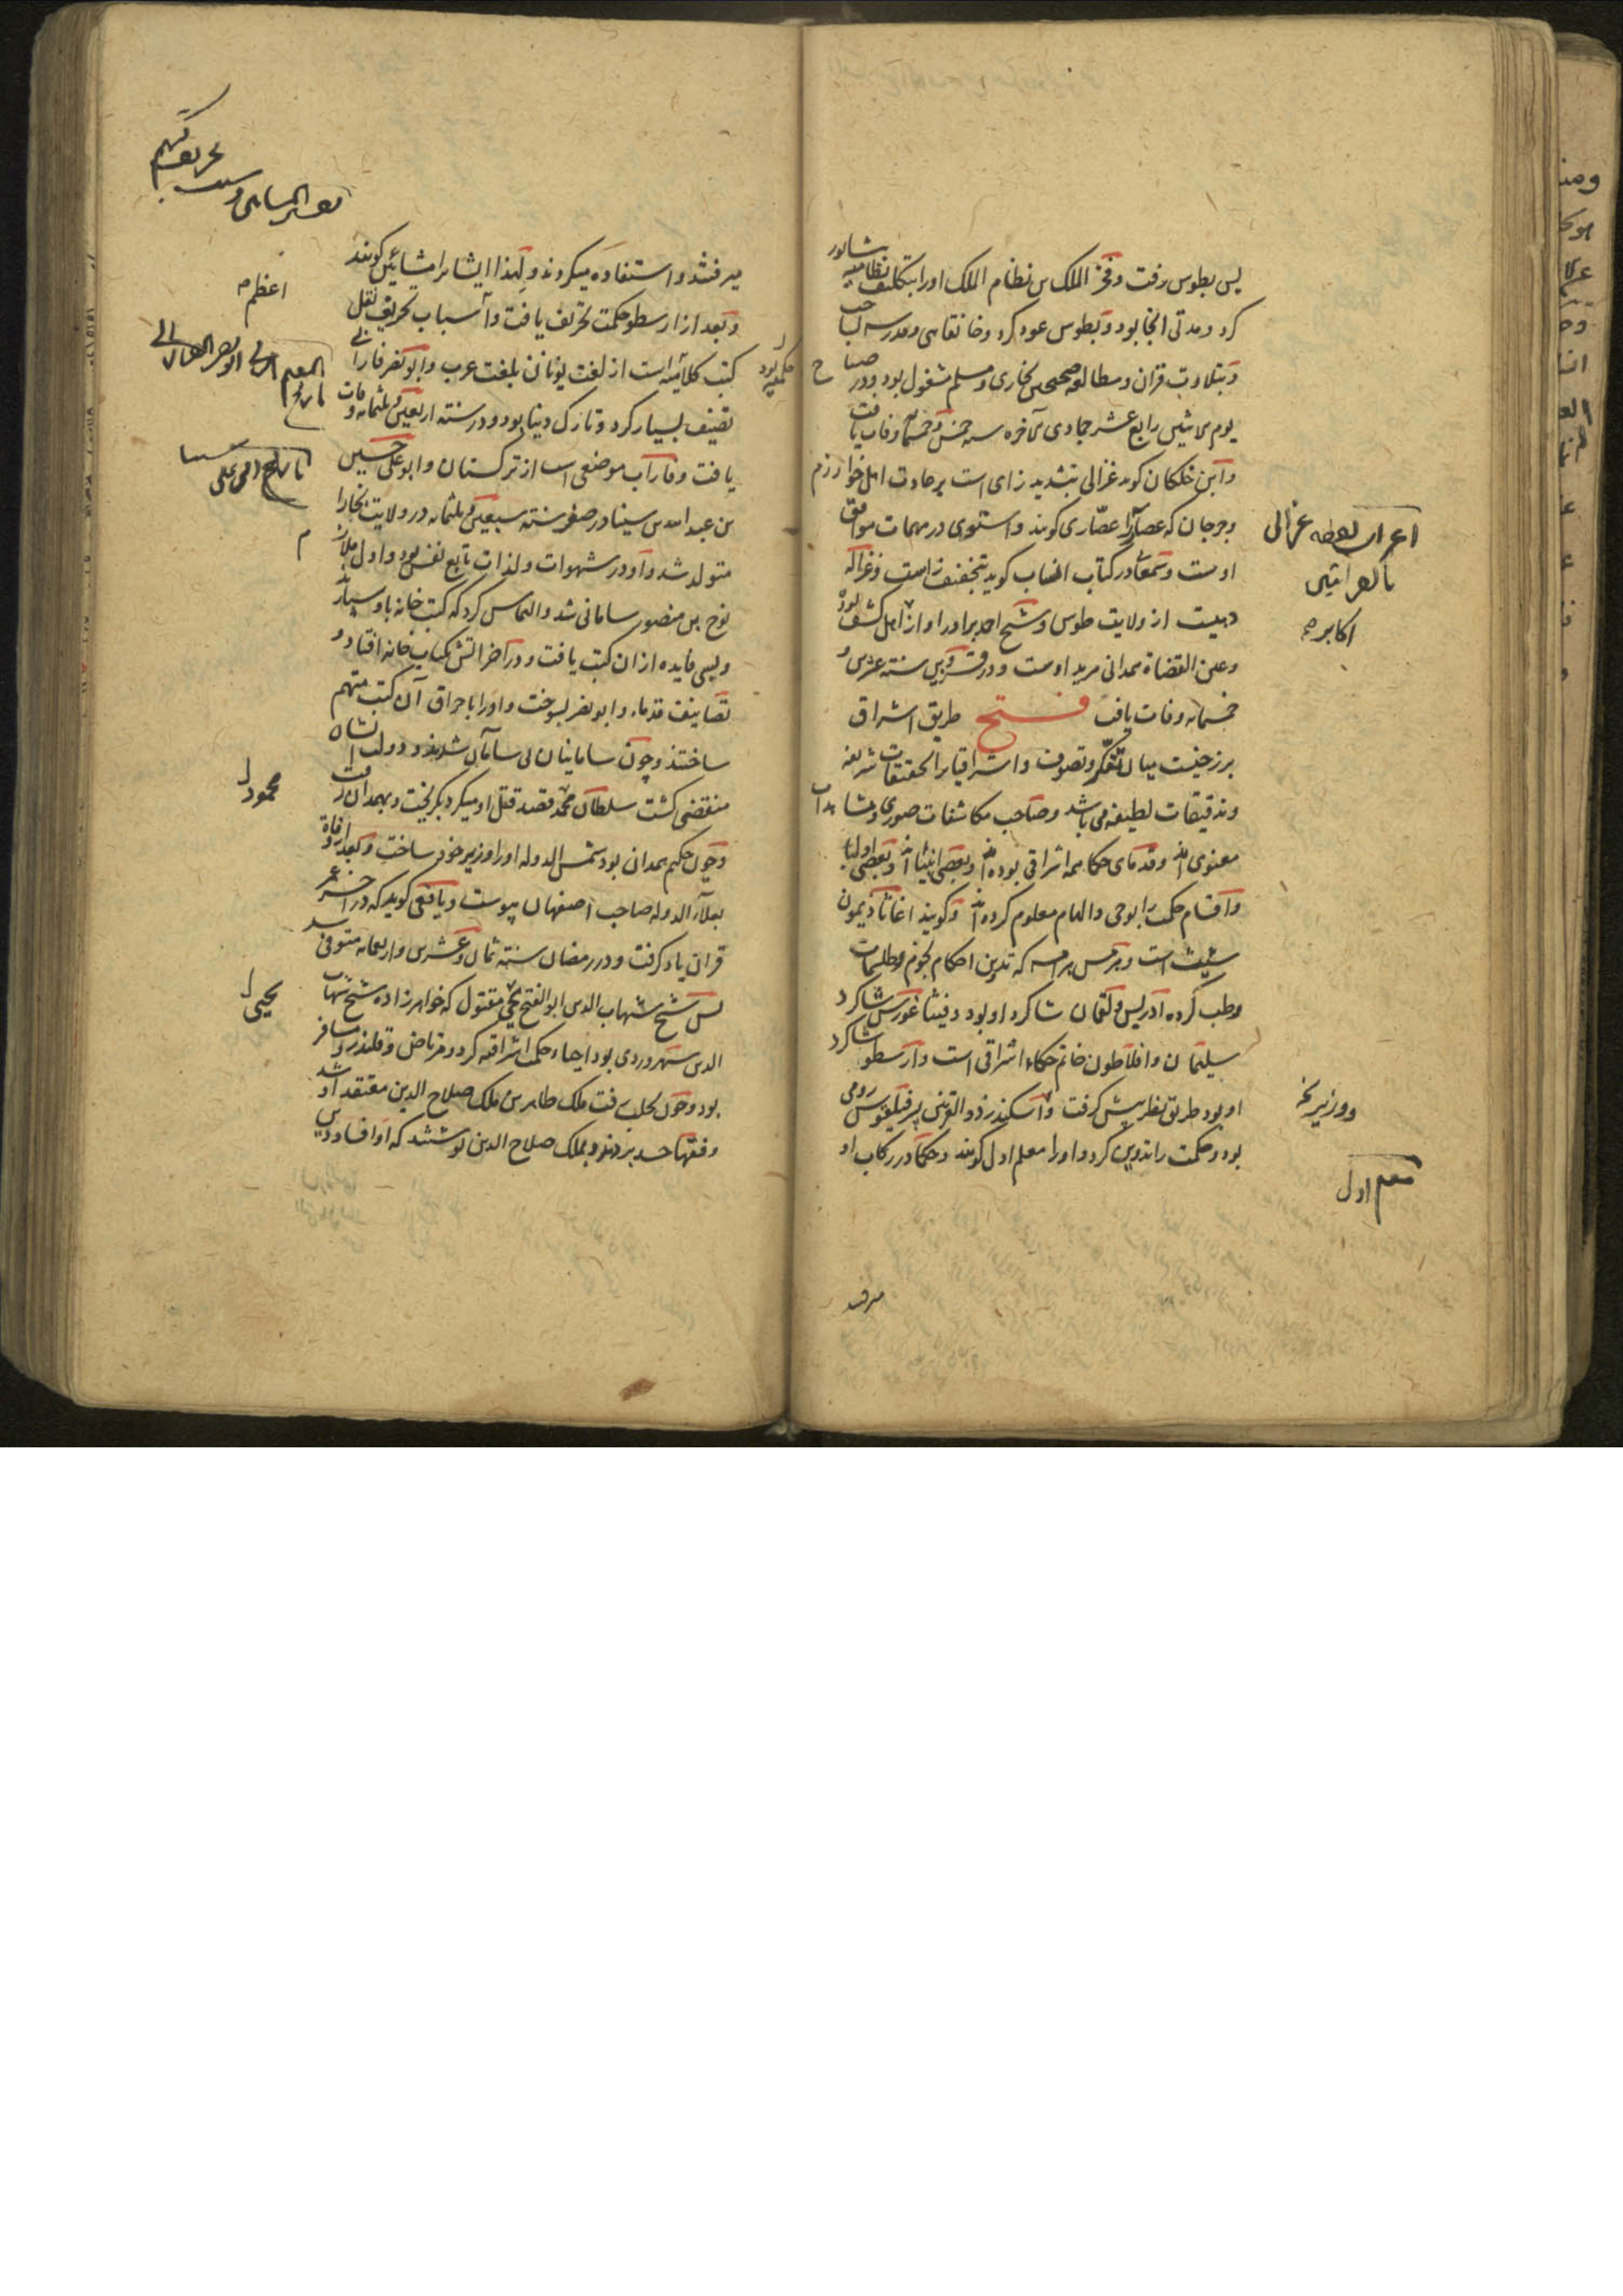 پس بطوس رفت و فخر الملک بن نظام الملک او را بتکلیف نظامیه
کرد و مدتی آنجا بود و بطوس عود کرد و خانقاهی و مدرسه ساخت
و بتلاوت قران و مطالعه صحیحین بخاری و مسلم مشغول بود و در صباح
یوم رابع عشر جمادی الآخره سنه خمس و خمسمائه وفات یافت
و ابن خلکان گوید غزالی بتشدید زای است بر عادت اهل خوارزم
و جرجان که عصار را عصّاری گویند و استنوی در مهمات موافق
اوست و سمعانی در کتاب انساب گوید بتخفیف زاست و غزاله
دهیست از ولایت طوس و شیخ احمد برادر او از اهل کشف بود
و عین القضاة همدانی مرید اوست و در قزوین سنه عشرین و
خمسمائه وفات یافت فتح طریق اشراق
برزخیست میان تفکر و تصوف و اشراقیان را تحقیقات شریفه
و تدقیقات لطیفه می باشد و صاحب مکاشفات صوری و مشاهدات
معنوی اند و قدمای حکما همه اشراقی بوده اند و بعضی انبیا اند و بعضی اولیا
و اقسام حکمت را بوحی و الهام معلوم کرده اند و گویند اغاثاذیمون
شیث است و هرمس هرامسه که تدوین احکام نجوم و طلسمات
و طب کرده ادریس و لقمان شاکرد او بود و فیثاغورس شاکرد
سلیمان و افلاطون خاتم حکماء اشراقی است و ارسطو شاکرد
او بود طریق نظر پیش گرفت و اسکندر ذو القرنین پسر فیلقوس رومی
بود و حکمت را تدوین کرد و او را معلم اول گویند و حکما در رکاب او
اعراب لفظه غزالی
اکابر
و وزیر
معلم اول
میرفتند
میرفتند و استفاده میکردند و لهذا ایشانرا مشائین گویند
و بعد از ارسطو حکمت تحریف یافت و اسباب تحریف نقل
کتب کلامیه است از لغت یونان بلغت عرب و ابو نصر فارابی
تصنیف بسیار کرد و تارک دنیا بود و در سنه اربعین و ثلثمائه وفات
یافت و فاراب موضعی است از ترکستان و ابو علی حسین
بن عبد الله بن سینا در صفر سنه سبعین و ثلثمائه در ولایت بخارا
متولد شد و او در شهوات و لذات تابع نفس بود و اول ملازم
نوح بن منصور سامانی شد و التماس کرد که کتب خانه باو سپارد
و بسی فایده ازان کتب یافت و در آخر آتش بکتاب خانه افتاد و
تصانیف قدما و ابو نصر بسوخت و او را باحراق آن کتب متهم
ساختند و چون سامانیان بی سامان شدند و دولت ایشان
منقضی کشت سلطان محمد قصد قتل او میکرد بگریخت و بهمدان رفت
و چون حکیم همدان بود شمس الدوله او را وزیر خود ساخت و بعد از وفاة او
بعلاء الدوله صاحب اصفهان پیوست و یافعی گوید که در آخر عمر
قران یاد گرفت و در رمضان سنه ثمان و عشرین و اربعمائه متوفی شد
پس شیخ شهاب الدین ابو الفتح یحیی مقتول که خواهرزاده شیخ شهاب
الدین سهروردی بود احیاء حکمت اشراقیه کرد و مرتاض و قلندر و مسافر
بود و چون بحلب رفت ملک ظاهر بن ملک صلاح الدین معتقد او شد
و فقها حسد بردند و بملک صلاح الدین نوشتند که او افساد دین
اعظم
تاریخ ابی علی سینا
محمود
یحیی